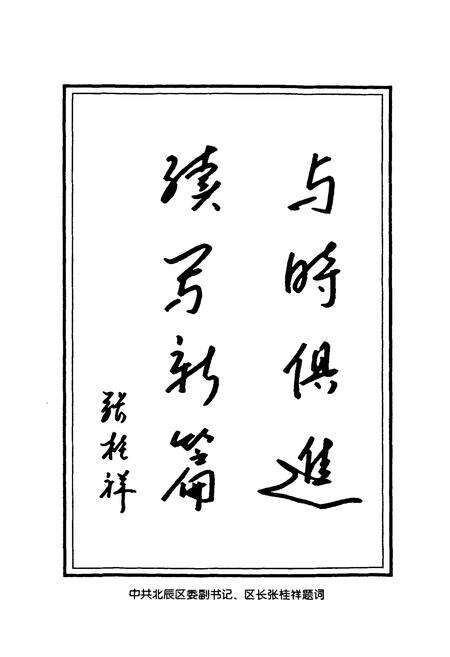 与時俱進
续写新篇
张桂祥
中共北辰区委副书记、区长张桂祥题词